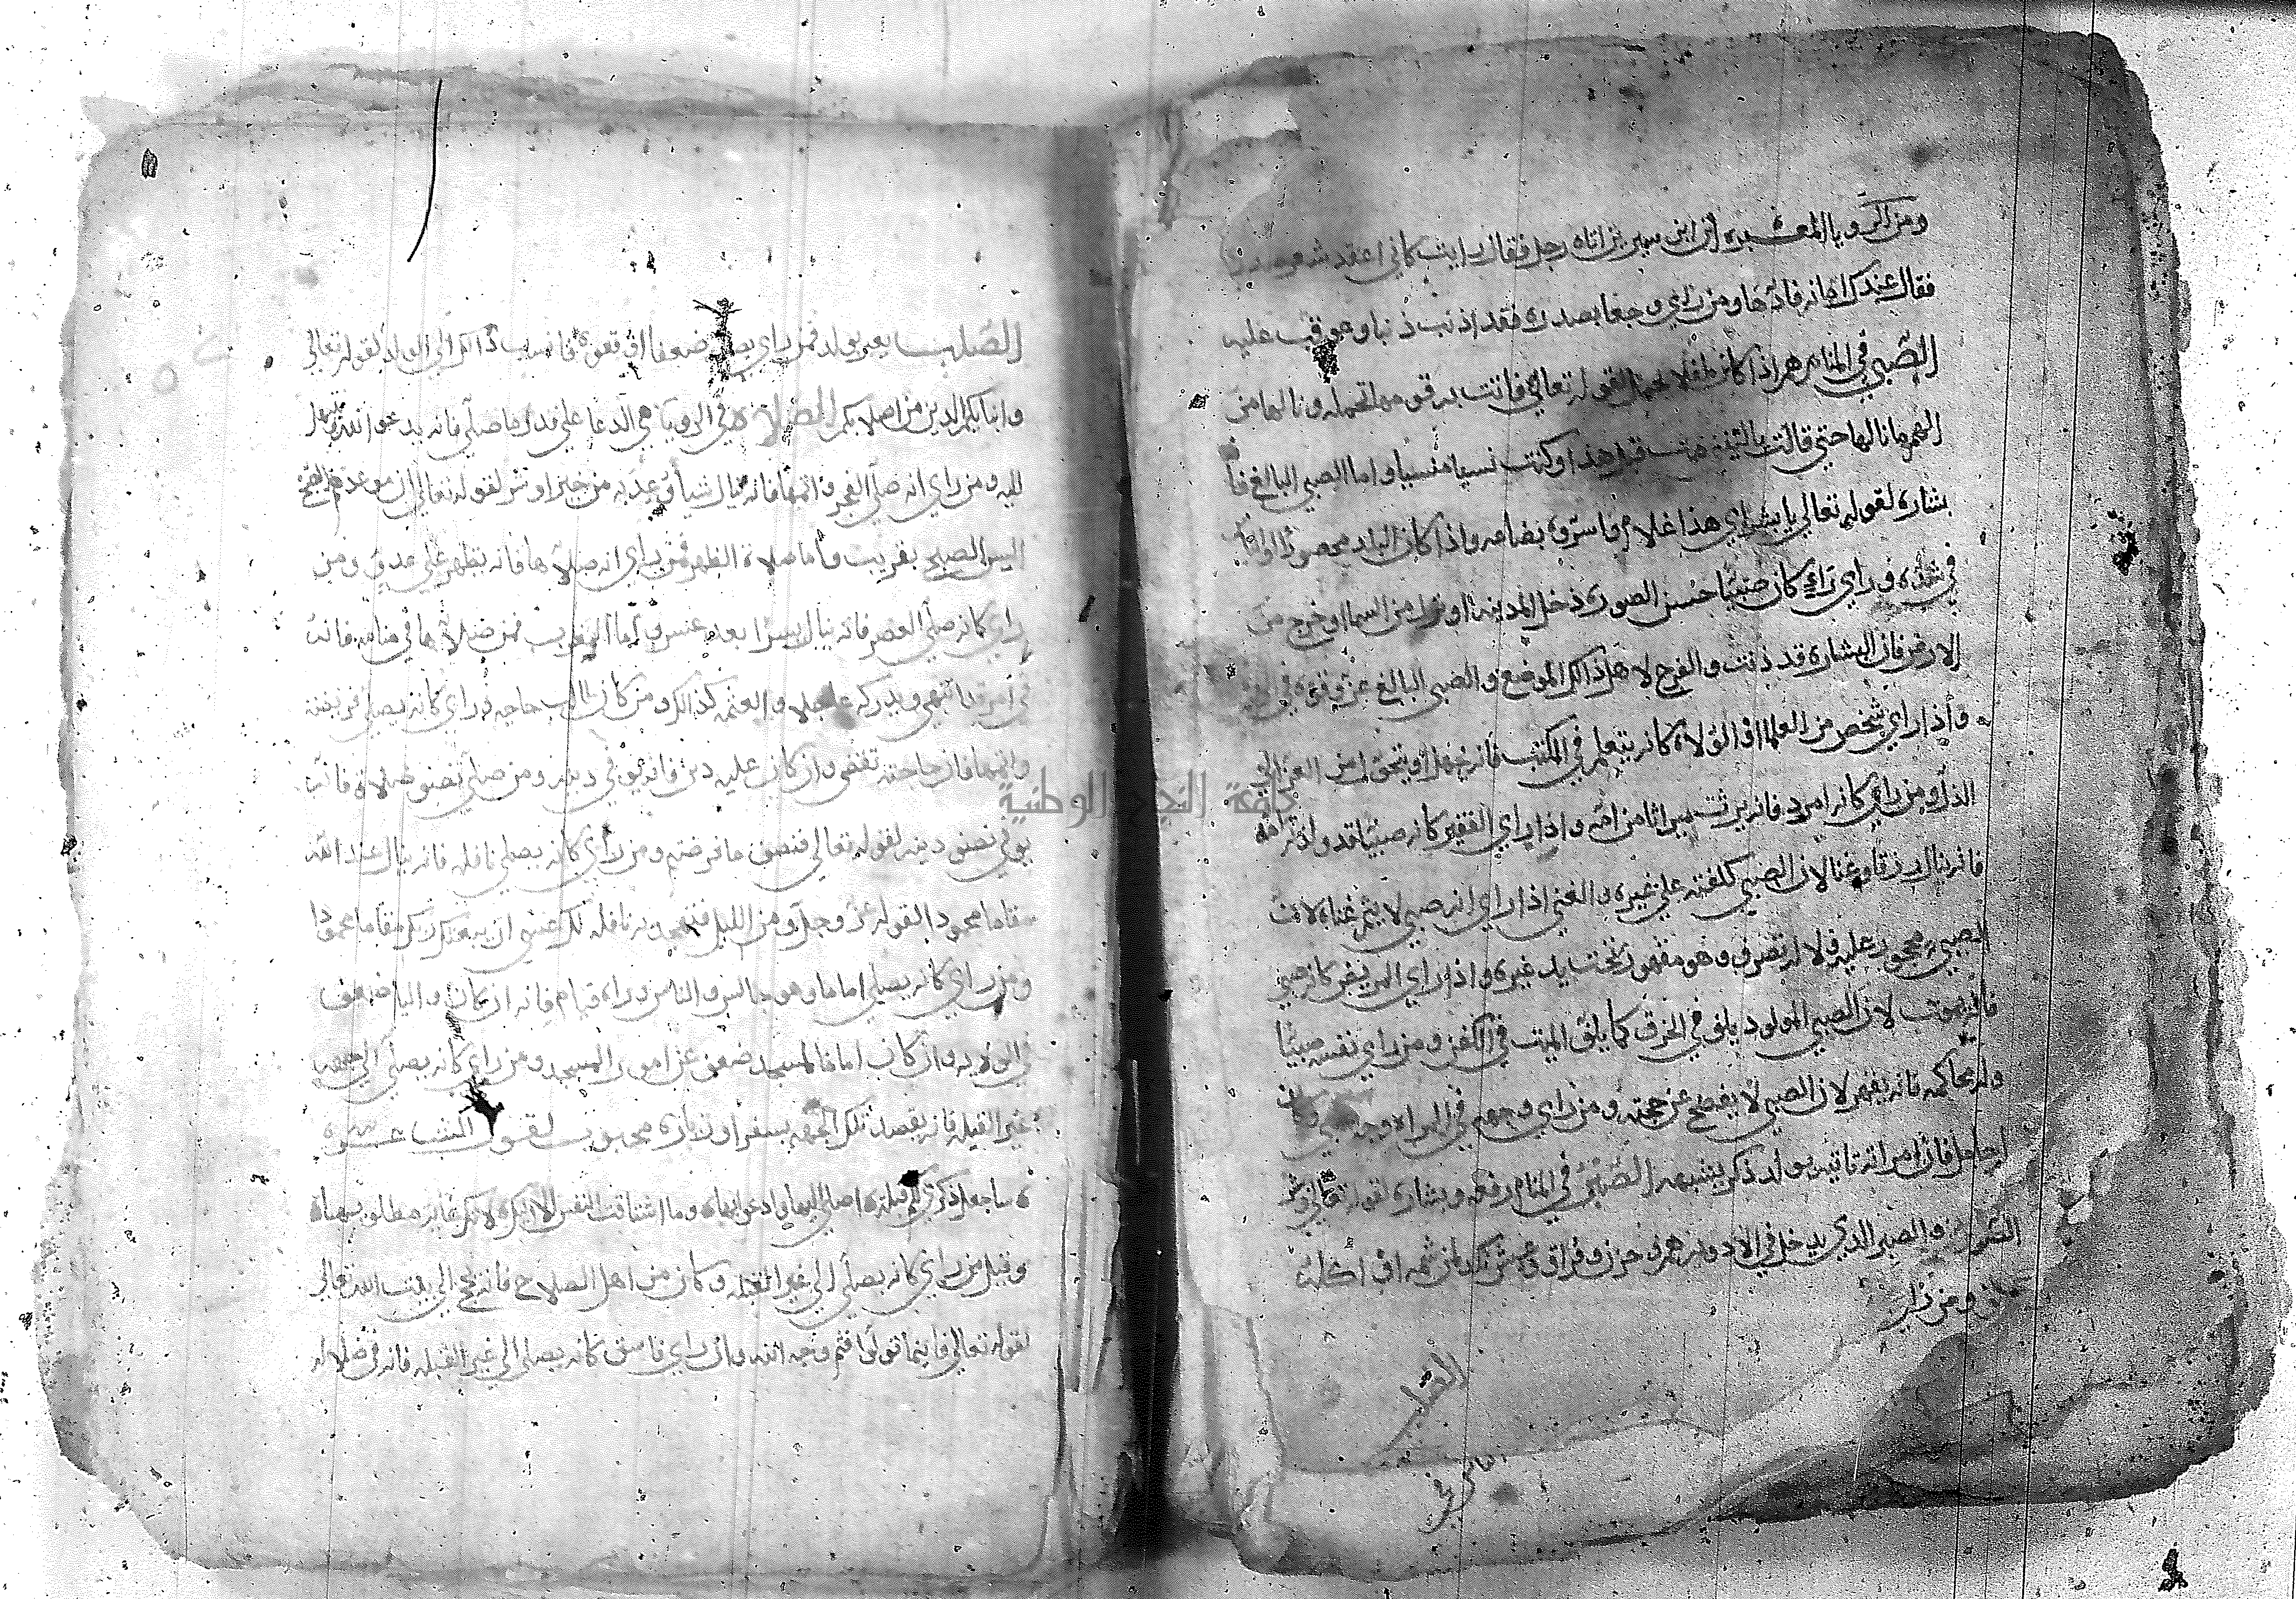 ومن الرويا المعبره ان ابن سيرين اتاه رجل فقال رايت كاني اعقد شعر
فقال عندك امانه فادها ومن راي وجعا بصدره فقد اذنب ذنبا وعوقب عليه
الصبي في المنام هم اذا كان طفلا يحمل لقوله تعالي فاتت به قومها تحمله ونالها من
الهم ما نالها حتي قالت يا ليتني مت قبل هذا وكنت نسيا منسيا واما الصبي البالغ
بشاره لقوله تعالي يا بشراي هذا غلام واسروه بضاعه واذا كان البلد محصورا
في شده وراي كان صبيا حسن الصوره دخل المدينه او نزل من السما او خرج من
الارض فان البشاره قد دنت والفرج لاهل ذلك الموضع والصبي البالغ عز وقوه
واذا راي شخص من العلما او الولاه كانه يتعلم في المكتب فانه من العز الي
الذل ومن راي كانه امرد فانه يرث ميراثا من امه واذا راي الفقير كانه صبيا
فانه ينال رزقا وغنا لان الصبي كلفته علي غيره والغني اذا راي انه صبي لا يتم غناه لان
الصبي محجور عليه فلا له تصرف وهو مقهور تحت يد غيره واذا راي المريض كانه صبي
فانه يموت لان الصبي المولود يلف في الخرق كما يلف الميت في الكفن ومن راي نفسه صبيا
وله محاكمه فانه يقهر لان الصبي لا يفصح عن حجته ومن راي وجهه في المراه وجه صبي وكان
امراته تاتيه بولد ذكر يشبهه في المنام رفعه وبشاره لقوله تعالي
والصبر الذي يدخل في الادويه هم وحزن وفراق
ومن راي
الصلب يعبر بولد فمن راي ضعفا او قوه فانسب ذلك الي الولد لقوله تعالي
وابنايكم الذين من اصلابكم الصلاه في الرويا هي الدعا علي قدر ما صلي فانه يدعو الله
ومن راي انه صلي الفجر واتمها فانه ينال شيا وعد به من خير او شر لقوله تعالي ان موعدهم الصبح
اليس الصبح بقريب واما صلاة الظهر فمن راي انه صلاها فانه يظهر علي عدو ومن
راي كانه صلي العصر فانه ينال يسرا بعد عسر واما المغرب فمن صلاها في منامه فانه
في امر ينتهي ويدركه عاجلا والعتمه كذلك ومن كان طالب حاجه وراي كانه يصلي فريضه
واتمها فان حاجته تقضي وان كان عليه دين فانه يوفي دينه ومن صلي نصف صلاة فانه
يوفي نصف دينه لقوله تعالي فنصف ما فرضتم ومن راي كانه يصلي نافله فانه ينال عند الله
مقاما محمودا لقوله عز وجل ومن الليل فتهجد به نافله لك عسي ان يبعثك ربك مقاما محمودا
ومن راي كانه يصلي اماما وهو جالس والناس وراه قيام فانه ان كان واليا ضعف
في الولايه وان كان اماما لمسجد ضعف عن امور المسجد ومن راي كانه يصلي الي جهه
غير القبله فانه يقصد تلك الجهه بسفر او زياره محبوب لقول الشاعر
ساجعل ذكري قبلة اصلي اليها وادعوا بها وما اشتاقت النفس الا بكم
وقيل من راي كانه يصلي الي غير القبله وكان من اهل الصلاح فانه يحج الي بيت الله تعالي
لقوله تعالي فاينما تولوا فثم وجه الله وان راي فاسق كانه يصلي الي غير القبله فانه في ضلاله
جامعة النجاح الوطنية